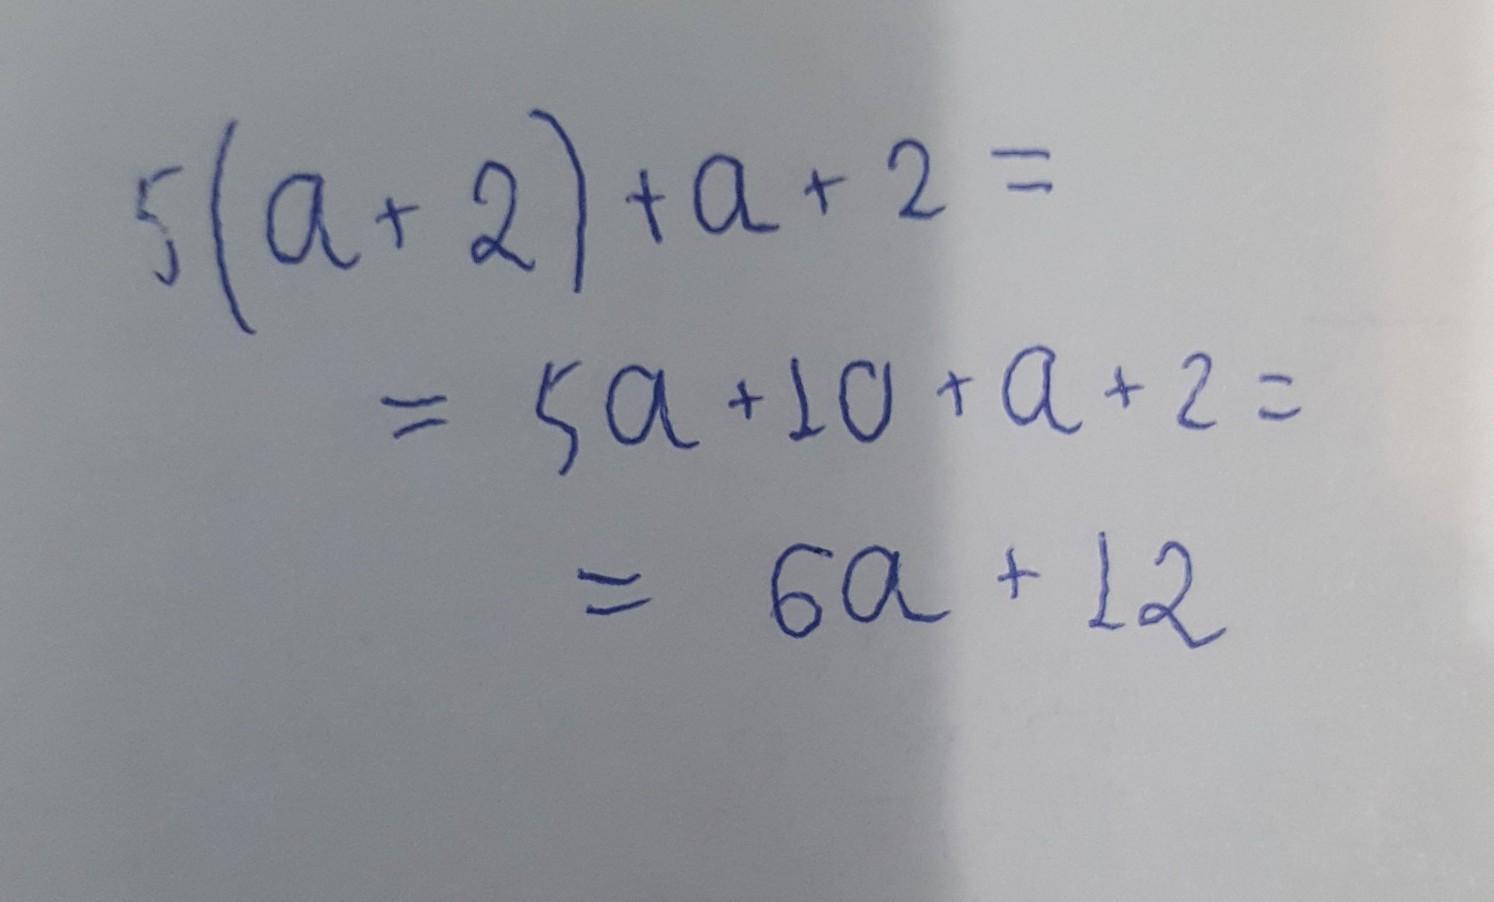 5(a+2)+a+2=
= 5a+10+a+2=
= 6a+12